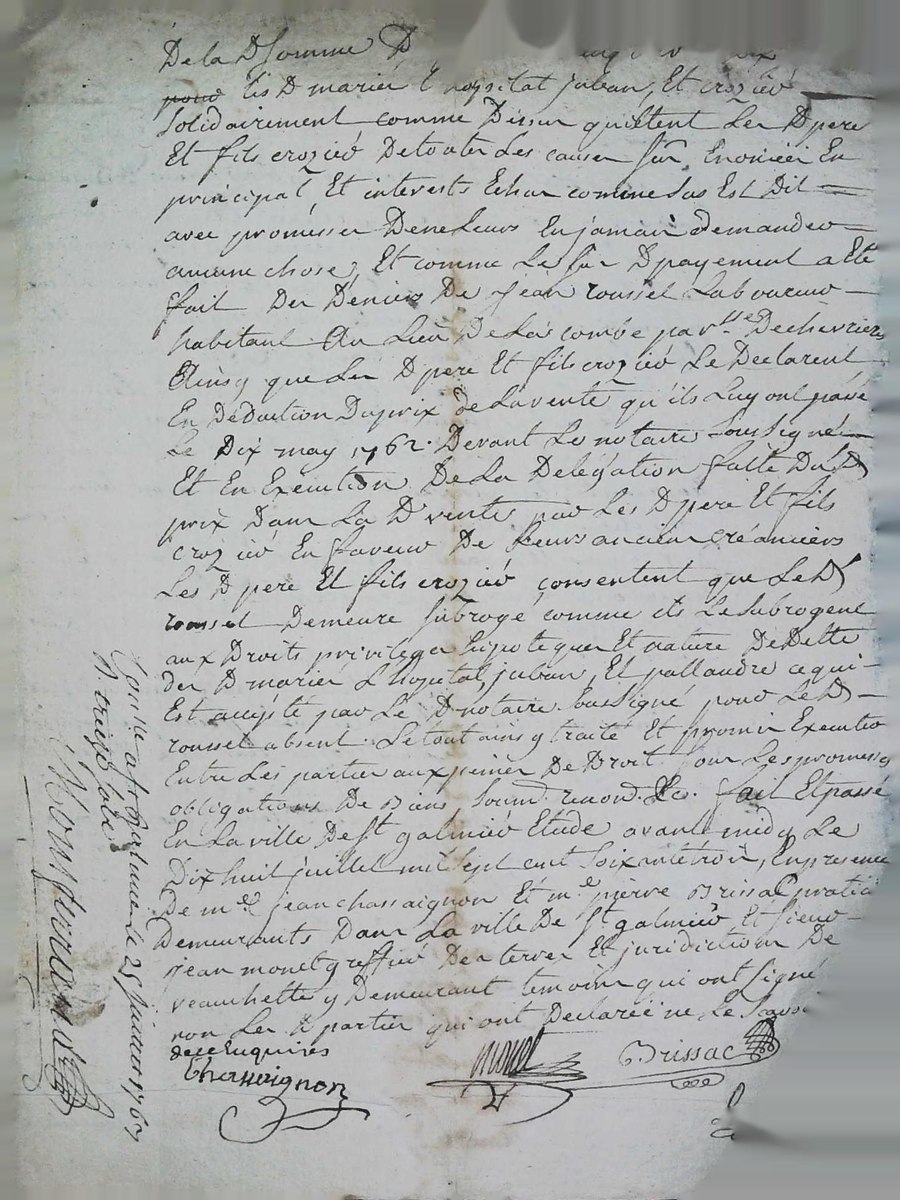 De la D somme D
pour les D mariés l'hopital juban, Et crozier
solidairement comme Dessus quittent Les D pere
Et fils crozier De toutes Les causes Sur Enoncées En
principal, Et interests Echus comme sus Est Dit
avec promesses De ne Leurs En jamais Demander
aucune chose, Et comme Le sur D payement a Eté
fait Des Deniers De jean roussel Laboureur
habitant Au Lieu De La combe parsse De chevrieres
Ainsy que Les D pere Et fils crozier Le Declarent
En Deduction Du prix de La vente qu'ils Luy ont passé
Le Dix may 1762. Devant Le notaire soussigné
Et En Execution De La Delégation faitte Du D
prix Dans La D vente par Les D pere Et fils
crozier En faveur De Leurs anciens créanciers
Les D pere Et fils crozier consentent que Le D
roussel Demeure subrogé comme ils Le subrogent
aux Droits privileges hipoteques Et nature De Dette
des D mariés L'hopital, juban, Et pallandre ce qui
Est accepté par Le D notaire soussigné pour Le D
roussel absent. Le tout ainsy traité Et promis Executer
Entre Les parties aux peines De Droit sous Les promesses
obligations De Biens soumd. renond. &c. fait Et passé
En La ville De St galmier Etude avant midy Le
Dix huit juillet mil sept cent soixante trois, En presence
De mes. jean chassaignon Et me pierre Brissac praticiens
Demeurants Dans La ville De St galmier Et sieur
jean monet greffier Des terres Et juridictions De
veauchette y Demeurant temoins qui ont signé
non Les D parties qui ont Declarée ne Le Savoir
de ce Enquises
Chassaignon
monet
Brissac
a St galmier Le 25 1763
Reçu